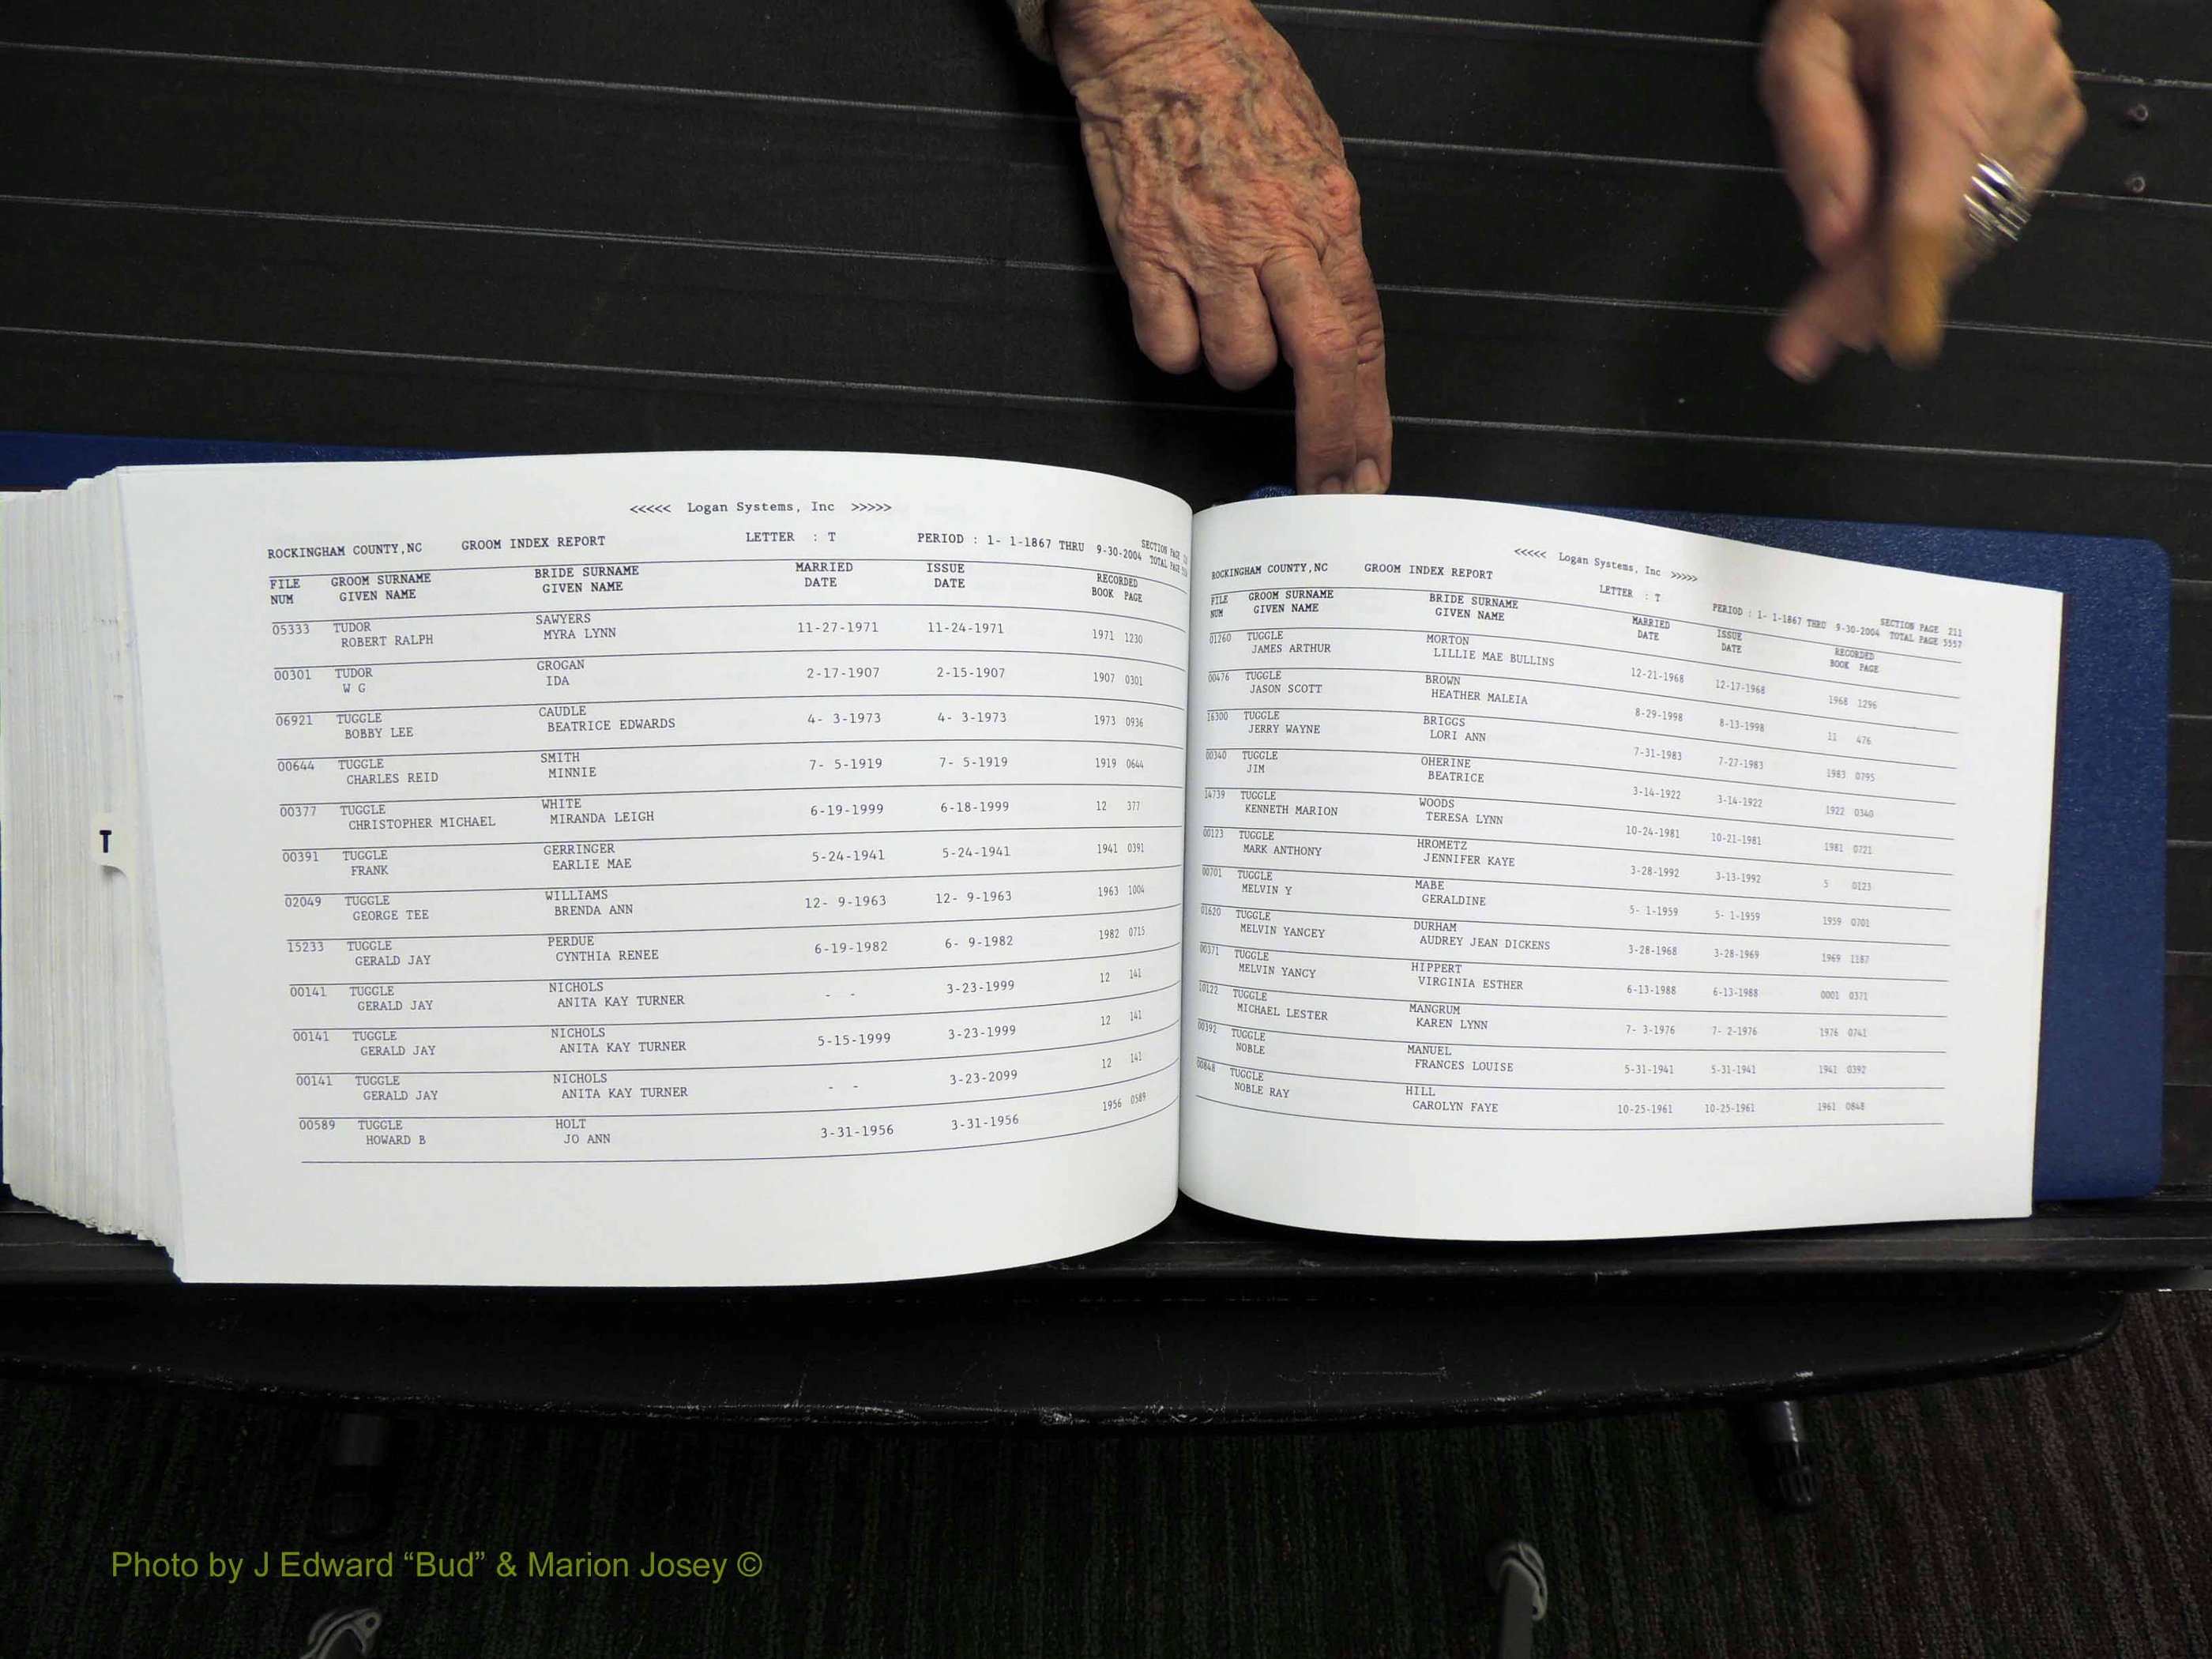 <<<<< Logan Systems, Inc >>>>>
ROCKINGHAM COUNTY,NC GROOM INDEX REPORT LETTER : T PERIOD : 1- 1-1867 THRU 9-30-2004 SECTION PAGE
TOTAL PAGE
FILE GROOM SURNAME BRIDE SURNAME MARRIED ISSUE RECORDED
NUM GIVEN NAME GIVEN NAME DATE DATE BOOK PAGE
05333 TUDOR SAWYERS 11-27-1971 11-24-1971 1971 1230
ROBERT RALPH MYRA LYNN
00301 TUDOR GROGAN 2-17-1907 2-15-1907 1907 0301
W G IDA
06921 TUGGLE CAUDLE 4- 3-1973 4- 3-1973 1973 0936
BOBBY LEE BEATRICE EDWARDS
00644 TUGGLE SMITH 7- 5-1919 7- 5-1919 1919 0644
CHARLES REID MINNIE
00377 TUGGLE WHITE 6-19-1999 6-18-1999 12 377
CHRISTOPHER MICHAEL MIRANDA LEIGH
00391 TUGGLE GERRINGER 5-24-1941 5-24-1941 1941 0391
FRANK EARLIE MAE
02049 TUGGLE WILLIAMS 12- 9-1963 12- 9-1963 1963 1004
GEORGE TEE BRENDA ANN
15233 TUGGLE PERDUE 6-19-1982 6- 9-1982 1982 0715
GERALD JAY CYNTHIA RENEE
00141 TUGGLE NICHOLS - - 3-23-1999 12 141
GERALD JAY ANITA KAY TURNER
00141 TUGGLE NICHOLS 5-15-1999 3-23-1999 12 141
GERALD JAY ANITA KAY TURNER
00141 TUGGLE NICHOLS - - 3-23-2099 12 141
GERALD JAY ANITA KAY TURNER
00589 TUGGLE HOLT 3-31-1956 3-31-1956 1956 0589
HOWARD B JO ANN
T
<<<<< Logan Systems, Inc >>>>>
ROCKINGHAM COUNTY,NC GROOM INDEX REPORT LETTER : T PERIOD : 1- 1-1867 THRU 9-30-2004 SECTION PAGE 211
TOTAL PAGE 5557
FILE GROOM SURNAME BRIDE SURNAME MARRIED ISSUE RECORDED
NUM GIVEN NAME GIVEN NAME DATE DATE BOOK PAGE
01260 TUGGLE MORTON 12-21-1968 12-17-1968 1968 1296
JAMES ARTHUR LILLIE MAE BULLINS
00476 TUGGLE BROWN 8-29-1998 8-13-1998 11 476
JASON SCOTT HEATHER MALEIA
16300 TUGGLE BRIGGS 7-31-1983 7-27-1983 1983 0795
JERRY WAYNE LORI ANN
00340 TUGGLE OHERINE 3-14-1922 3-14-1922 1922 0340
JIM BEATRICE
14739 TUGGLE WOODS 10-24-1981 10-21-1981 1981 0721
KENNETH MARION TERESA LYNN
00123 TUGGLE HROMETZ 3-28-1992 3-13-1992 5 0123
MARK ANTHONY JENNIFER KAYE
00701 TUGGLE MABE 5- 1-1959 5- 1-1959 1959 0701
MELVIN Y GERALDINE
01620 TUGGLE DURHAM 3-28-1968 3-28-1969 1969 1187
MELVIN YANCEY AUDREY JEAN DICKENS
00371 TUGGLE HIPPERT 6-13-1988 6-13-1988 0001 0371
MELVIN YANCY VIRGINIA ESTHER
10122 TUGGLE MANGRUM 7- 3-1976 7- 2-1976 1976 0741
MICHAEL LESTER KAREN LYNN
00392 TUGGLE MANUEL 5-31-1941 5-31-1941 1941 0392
NOBLE FRANCES LOUISE
00848 TUGGLE HILL 10-25-1961 10-25-1961 1961 0848
NOBLE RAY CAROLYN FAYE
Photo by J Edward “Bud” & Marion Josey ©